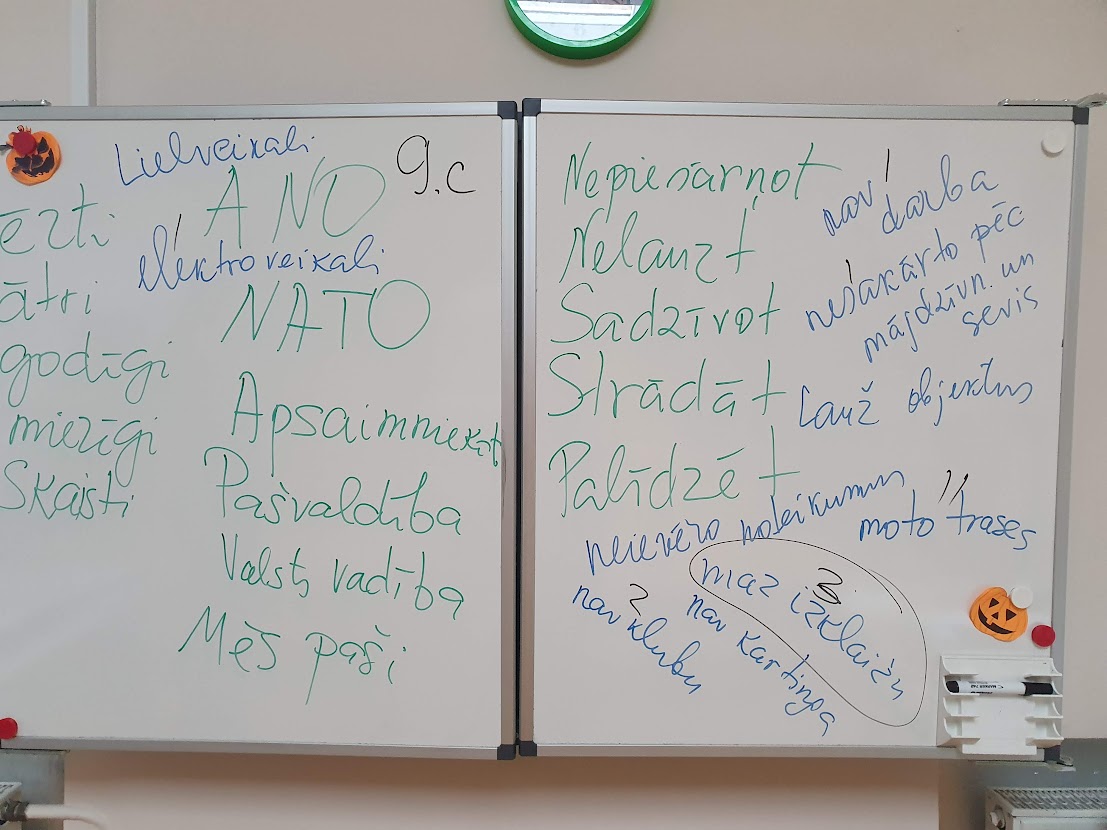 Lielveikali
9.c
ANO
ēzti
elektroveikali
ātri
NATO
godīgi
mierīgi
Apsaimniekot
Skaisti
Pašvaldība
Valsts vadība
Mēs paši
Nepiesārņot
nav darba
Nelauzt
nesakārto pēc
mājdzīvn. un
sevis
Sadzīvot
Strādāt
Lauž objektus
Palīdzēt
neievēro noteikumus
moto trases
maz izklaižu
3
nav kartinga
2
nav klubu